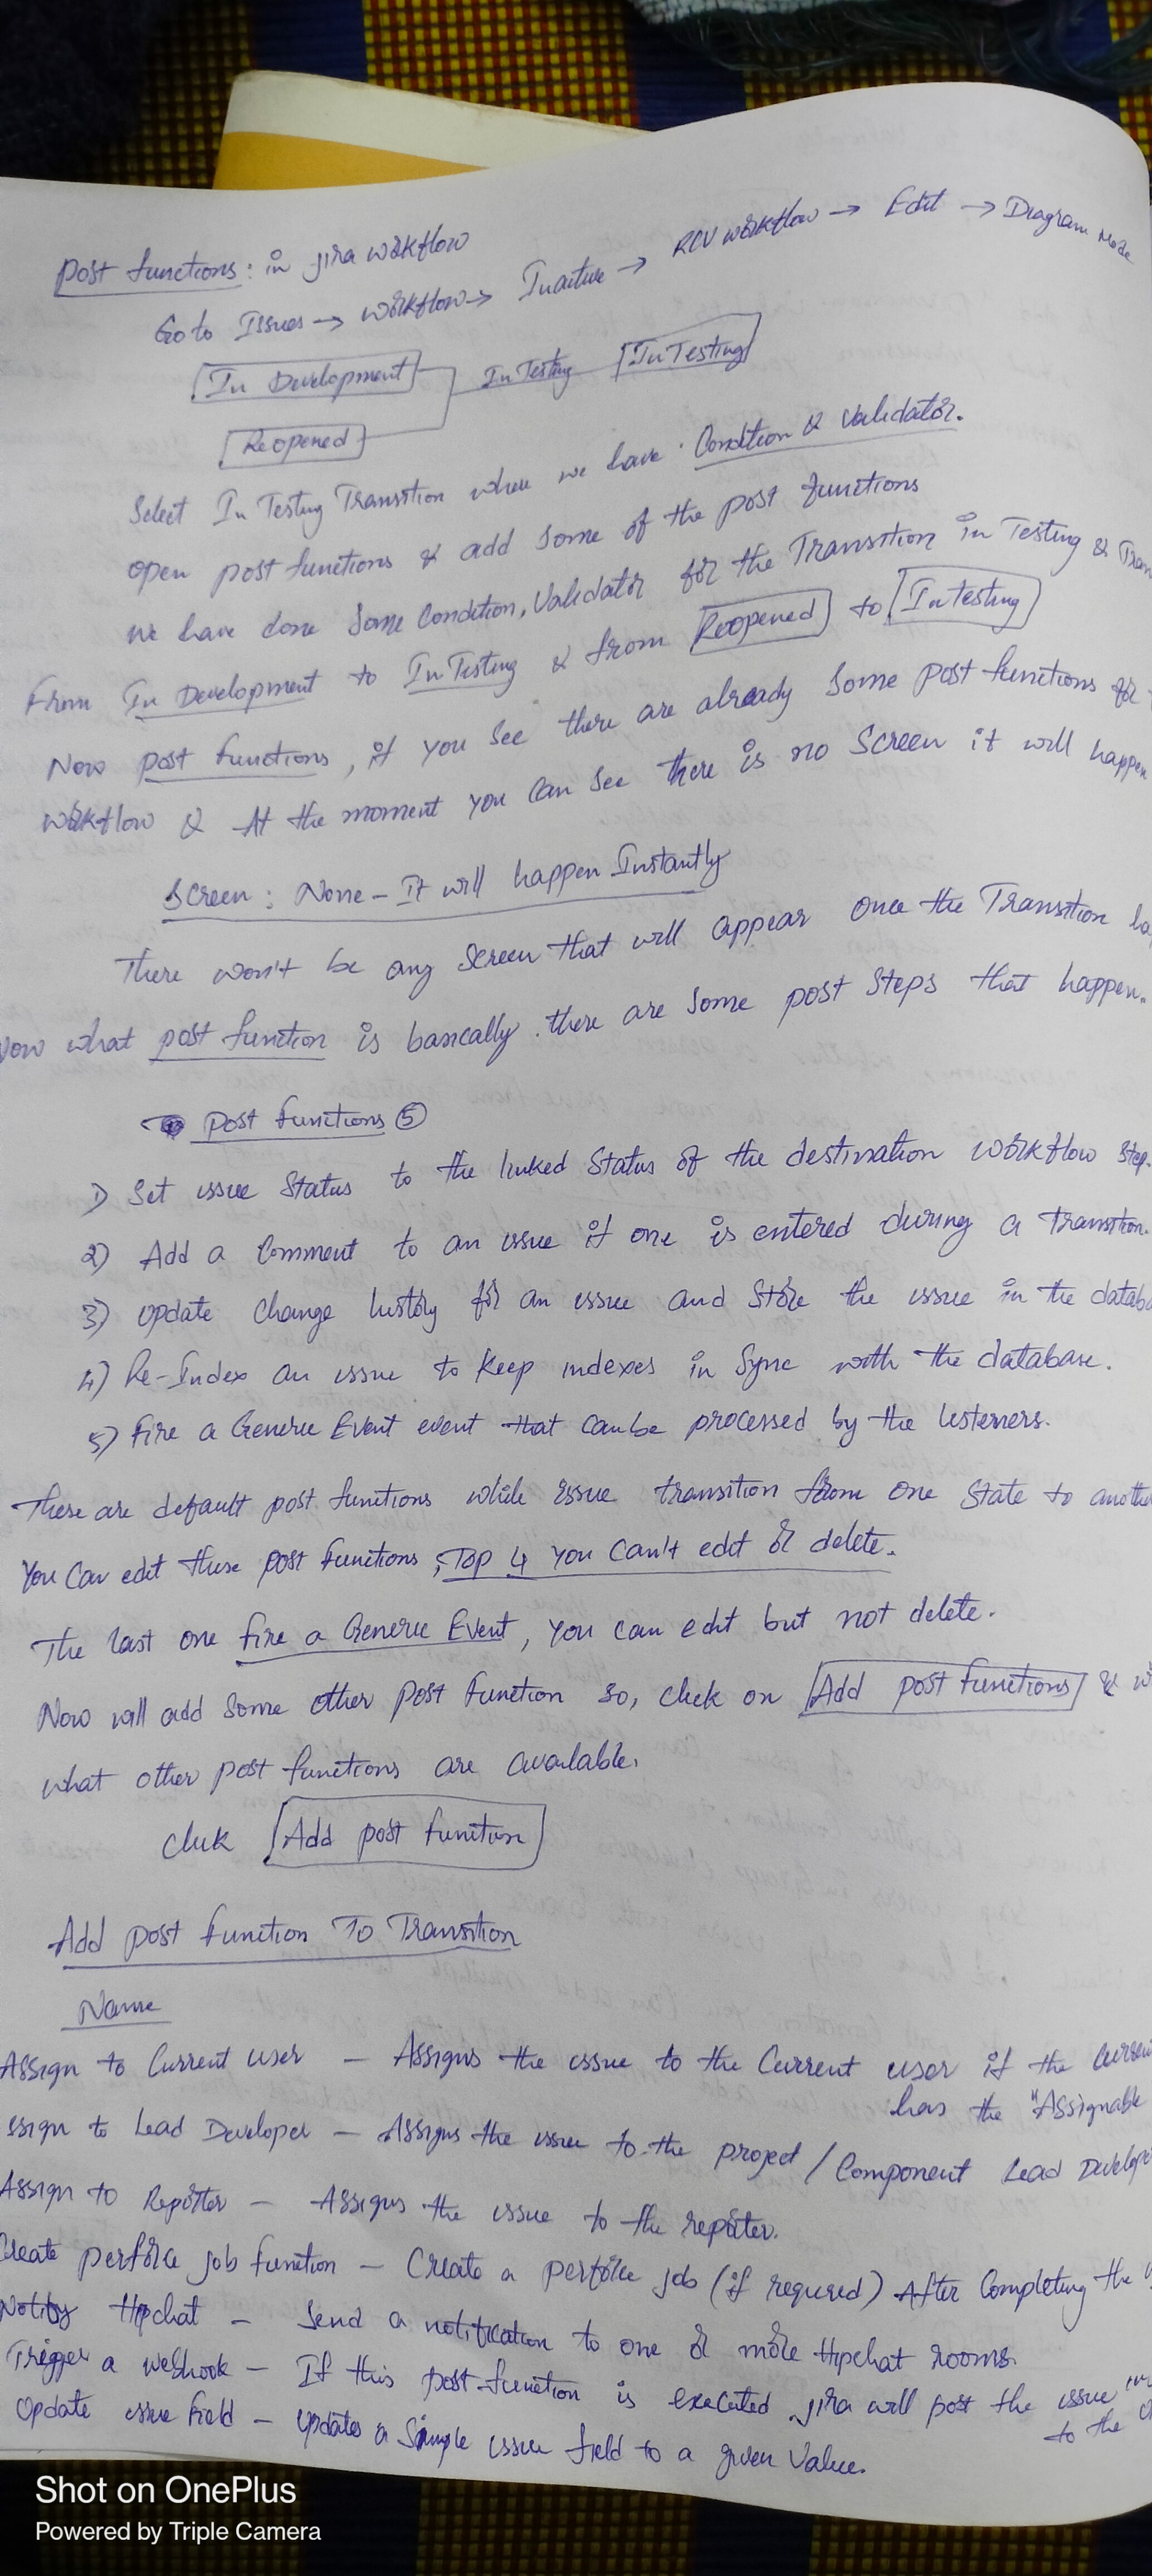 Post functions: in jira workflow
Go to Issues → workflow → Inactive → RCV workflow → Edit → Diagram Mode
In Development In Testing In Testing
Reopened
Select In Testing Transition where we have Condition & Validator.
open post functions & add some of the post functions
we have done some Condition, Validator for the Transition in Testing &
From In Development to In Testing & from Reopened to In Testing
Now post functions, if you see there are already some post functions for
workflow & At the moment you can see there is no Screen it will happen
Screen: None - It will happen Instantly
There won't be any Screen that will appear once the Transition
Now what post function is basically. there are some post steps that happen.
Post functions 5
1) Set issue Status to the linked Status of the destination workflow step.
2) Add a Comment to an issue if one is entered during a transition.
3) Update change history for an issue and Store the issue in the
4) Re-Index an issue to keep indexes in Sync with the database.
5) Fire a Generic Event event that can be processed by the listeners.
These are default post functions while issue transition from one State to
You Can edit these post functions, Top 4 you can't edit or delete.
The last one fire a Generic Event, you can edit but not delete.
Now will add some other post function so, click on Add post functions &
what other post functions are available.
Click Add post function
Add post function To Transition
Name
Assign to Current user - Assigns the issue to the Current user if the
has the "Assignable
ssign to Lead Developer - Assigns the issue to the project / Component Lead
Assign to Reporter - Assigns the issue to the reporter.
Create perforce job function - Create a perforce job (if required) After Completing the
Notify Hipchat - Send a notification to one or more Hipchat rooms.
Trigger a webhook - If this post-function is executed, jira will post the issue
to the
Update issue field - Updates a Simple issue field to a given Value.
Shot on OnePlus
Powered by Triple Camera